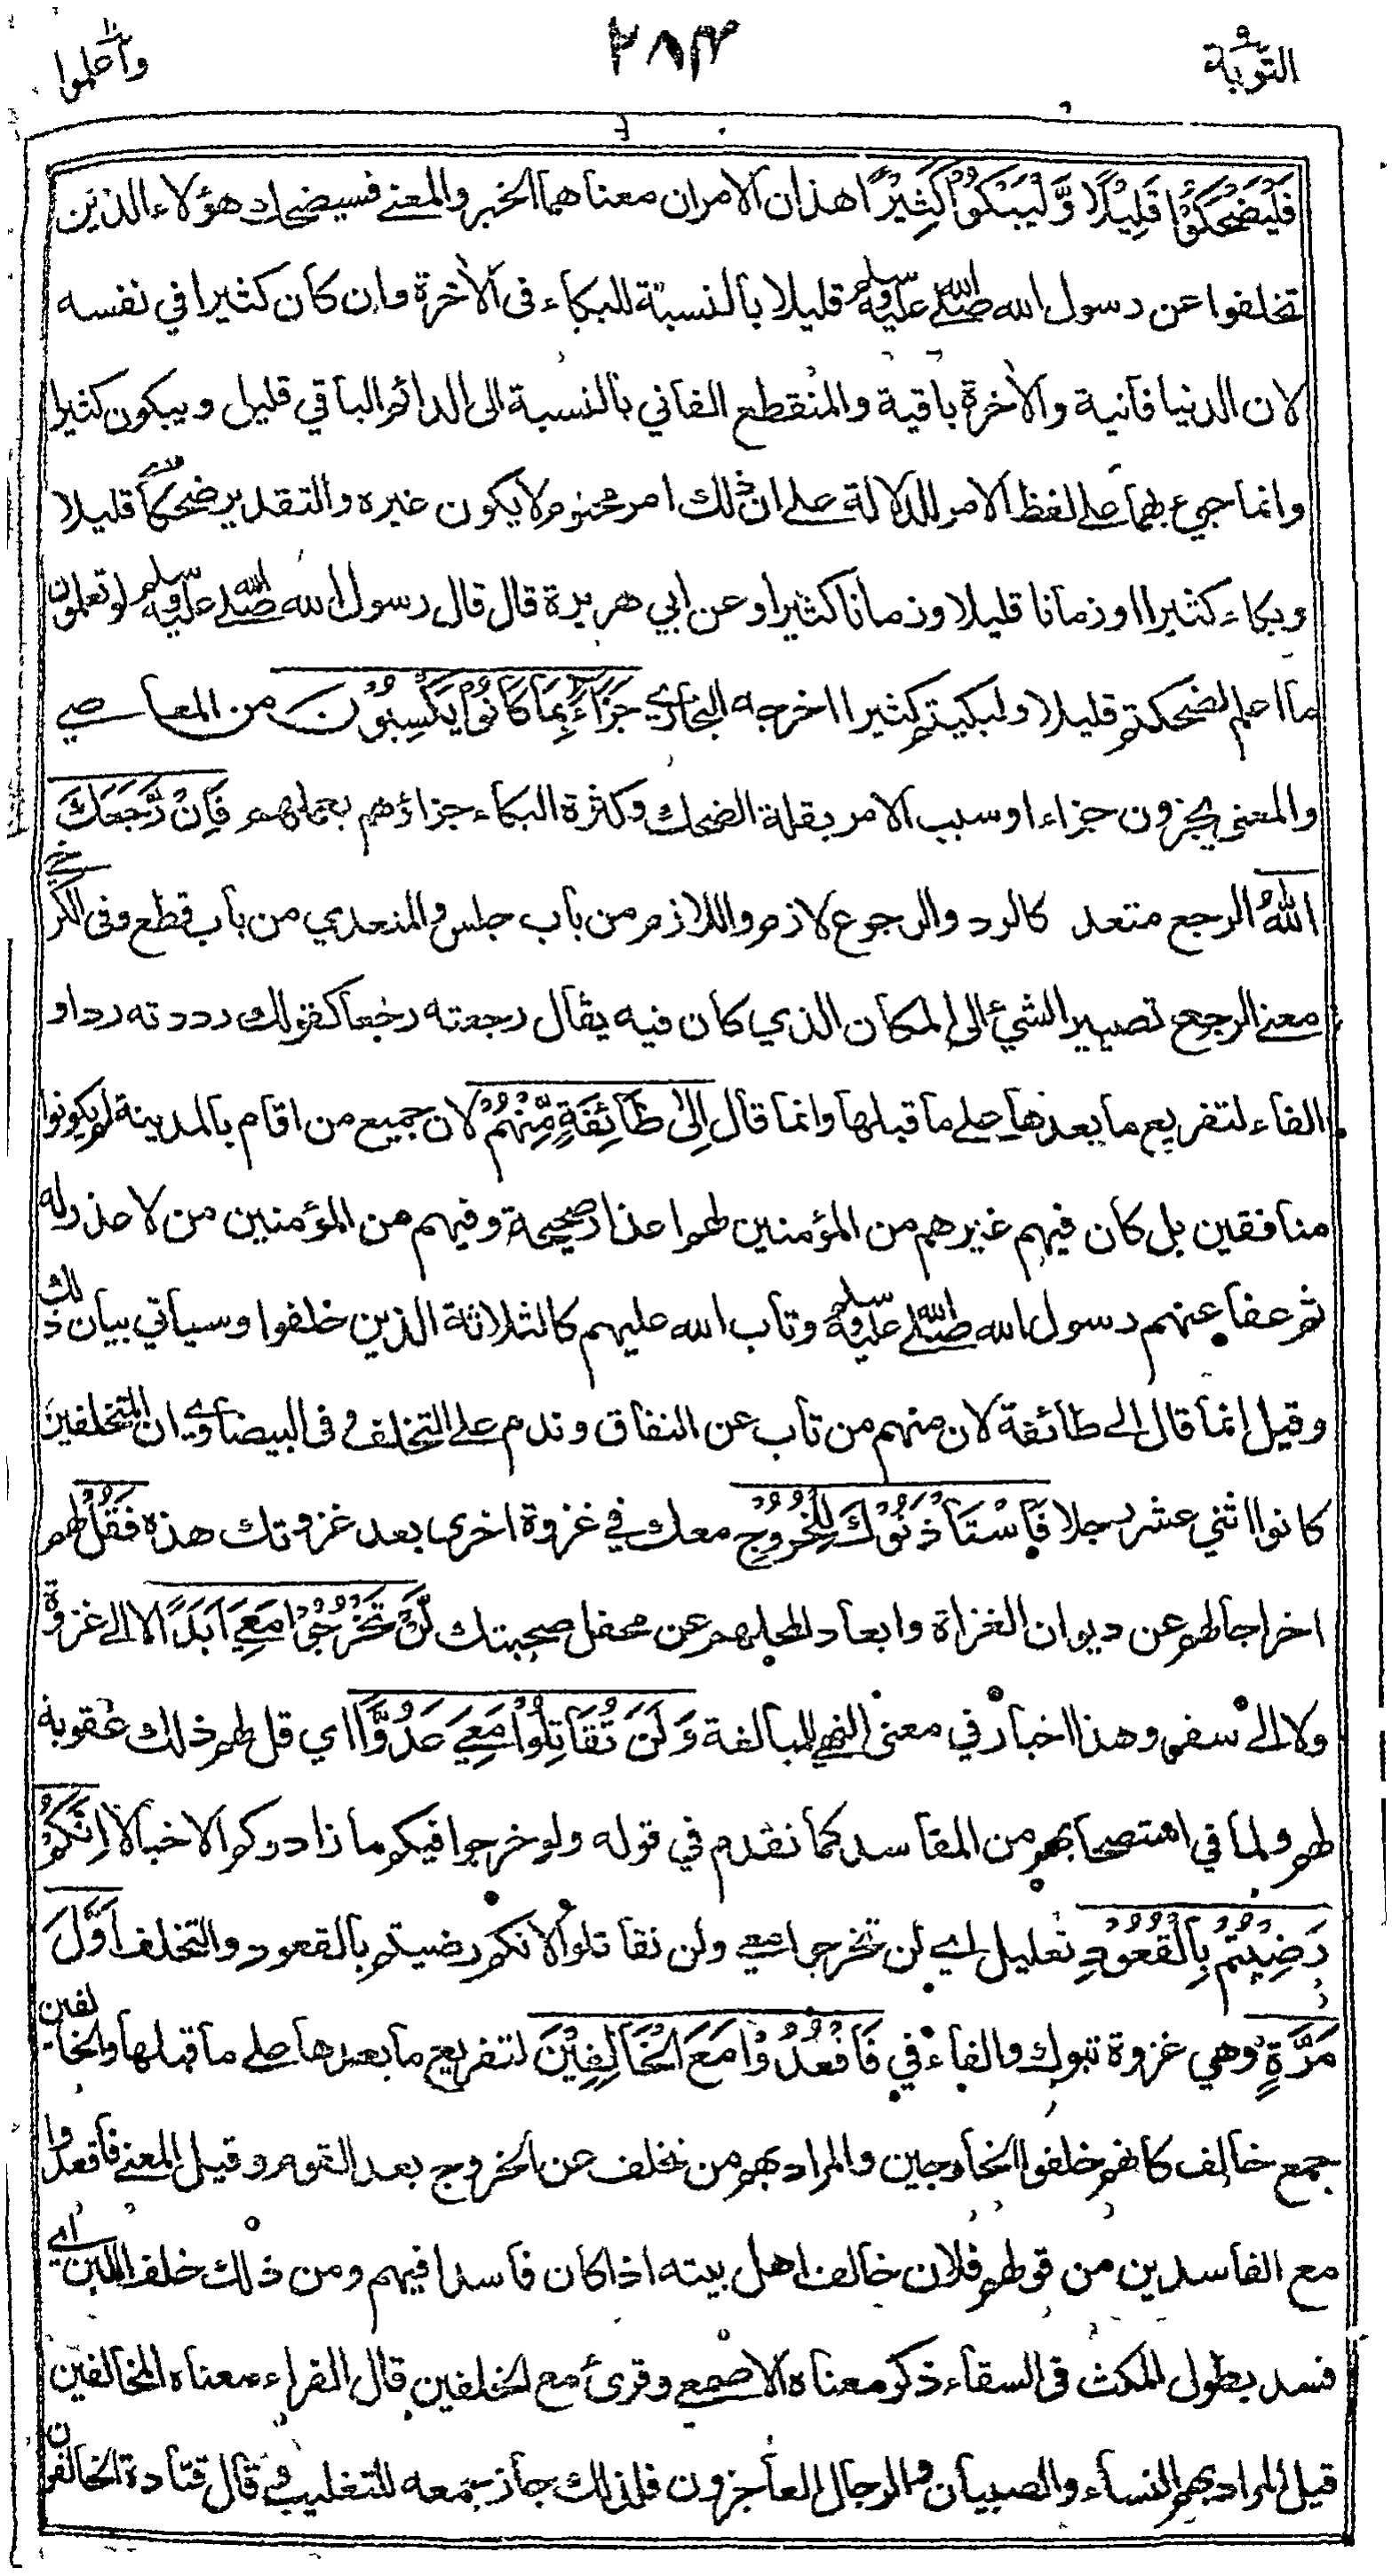 التوبة ٩
٢٨٤
واعلموا ١٠
فَلْيَضْحَكُوْا قَلِيْلًا وَّلْيَبْكُوْا كَثِيْرًا هذان الامران معناهما الخبر والمعنى فسيضحك هؤلاء الذين
تخلفوا عن رسول الله صلى الله عليه وسلم قليلا بالنسبة للبكاء فى الأخرة وان كان كثيرا في نفسه
لان الدنيا فانية والأخرة باقية والمنقطع الفاني بالنسبة الى الدائم الباقي قليل ويبكون كثيرا
وانما جيء بهما على لفظ الامر للدلالة على ان ذلك امر محتوم لا يكون غيره والتقدير ضحكا قليلا
وبكاء كثيرا او زمانا قليلا وزمانا كثيرا وعن ابي هريرة قال قال رسول الله صلى الله عليه وسلم لو تعلمون
ما اعلم لضحكتم قليلا ولبكيتم كثيرا اخرجه البخاري جَزَاءًۢ بِمَا كَانُوْا يَكْسِبُوْنَ من المعاصي
والمعنى يجزون جزاء او سبب الامر بقلة الضحك وكثرة البكاء جزاؤهم بعملهم فَاِنْ رَّجَعَكَ
اللهُ الرجع متعد كالرد والرجوع لازم واللازم من باب جلس والمتعدي من باب قطع وفى الكرخي
معنى الرجع تصيير الشيء الى المكان الذي كان فيه يقال رجعته رجعا كقولك رددته ردا و
الفاء لتفريع ما بعدها على ما قبلها وانما قال اِلٰى طَآئِفَةٍ مِّنْهُمْ لان جميع من اقام بالمدينة لم يكونوا
منافقين بل كان فيهم غيرهم من المؤمنين لهم اعذار صحيحة وفيهم من المؤمنين من لا عذر له
ثم عفا عنهم رسول الله صلى الله عليه وسلم وتاب الله عليهم كالثلاثة الذين خلفوا وسيأتي بيان ذلك
وقيل انما قال الى طائفة لان منهم من تاب عن النفاق وندم على التخلف وفى البيضاوي ان المتخلفين
كانوا اثني عشر رجلا فَاسْتَأْذَنُوْكَ لِلْخُرُوْجِ معك في غزوة اخرى بعد غزوتك هذه فَقُلْ لهم
اخراجا لهم عن ديوان الغزاة وابعاد لمحلهم عن محفل صحبتك لَّنْ تَخْرُجُوْا مَعِيَ اَبَدًا لا الى غزوة
ولا الى سفر وهذا اخبار في معنى النهي للمبالغة وَلَنْ تُقَاتِلُوْا مَعِيَ عَدُوًّا اي قل لهم ذلك عقوبة
لهم ولما في استصحابهم من المفاسد كما تقدم في قوله ولو خرجوا فيكم ما زادوكم الا خبالا اِنَّكُمْ
رَضِيْتُمْ بِالْقُعُوْدِ تعليل اي لن تخرجوا معي ولن تقاتلوا لانكم رضيتم بالقعود والتخلف اَوَّلَ
مَرَّةٍ وهي غزوة تبوك والفاء في فَاقْعُدُوْا مَعَ الْخَالِفِيْنَ لتفريع ما بعدها على ما قبلها والخالفين
جمع خالف كانهم خلفوا الخارجين والمراد بهم من تخلف عن الخروج بعد القوم وقيل المعنى فاقعدوا
مع الفاسدين من قولهم فلان خالف اهل بيته اذا كان فاسدا فيهم ومن ذلك خلف اللبن اي
فسد بطول المكث فى السقاء ذكر معناه الاصمعي وقرئ مع الخلفين قال الفراء معناه المخالفين
قيل المراد بهم النساء والصبيان والرجال العاجزون فلذلك جاز جمعه للتغليب وقال قتادة الخالفون